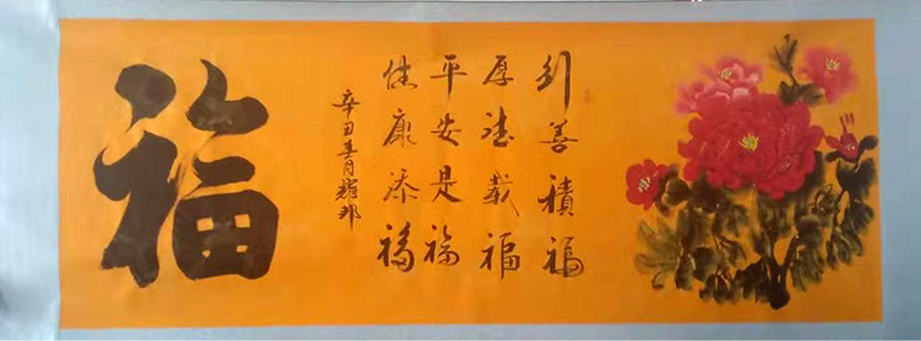 行善積福
厚德載福
平安是福
健康添福
辛丑春月耀邦
福